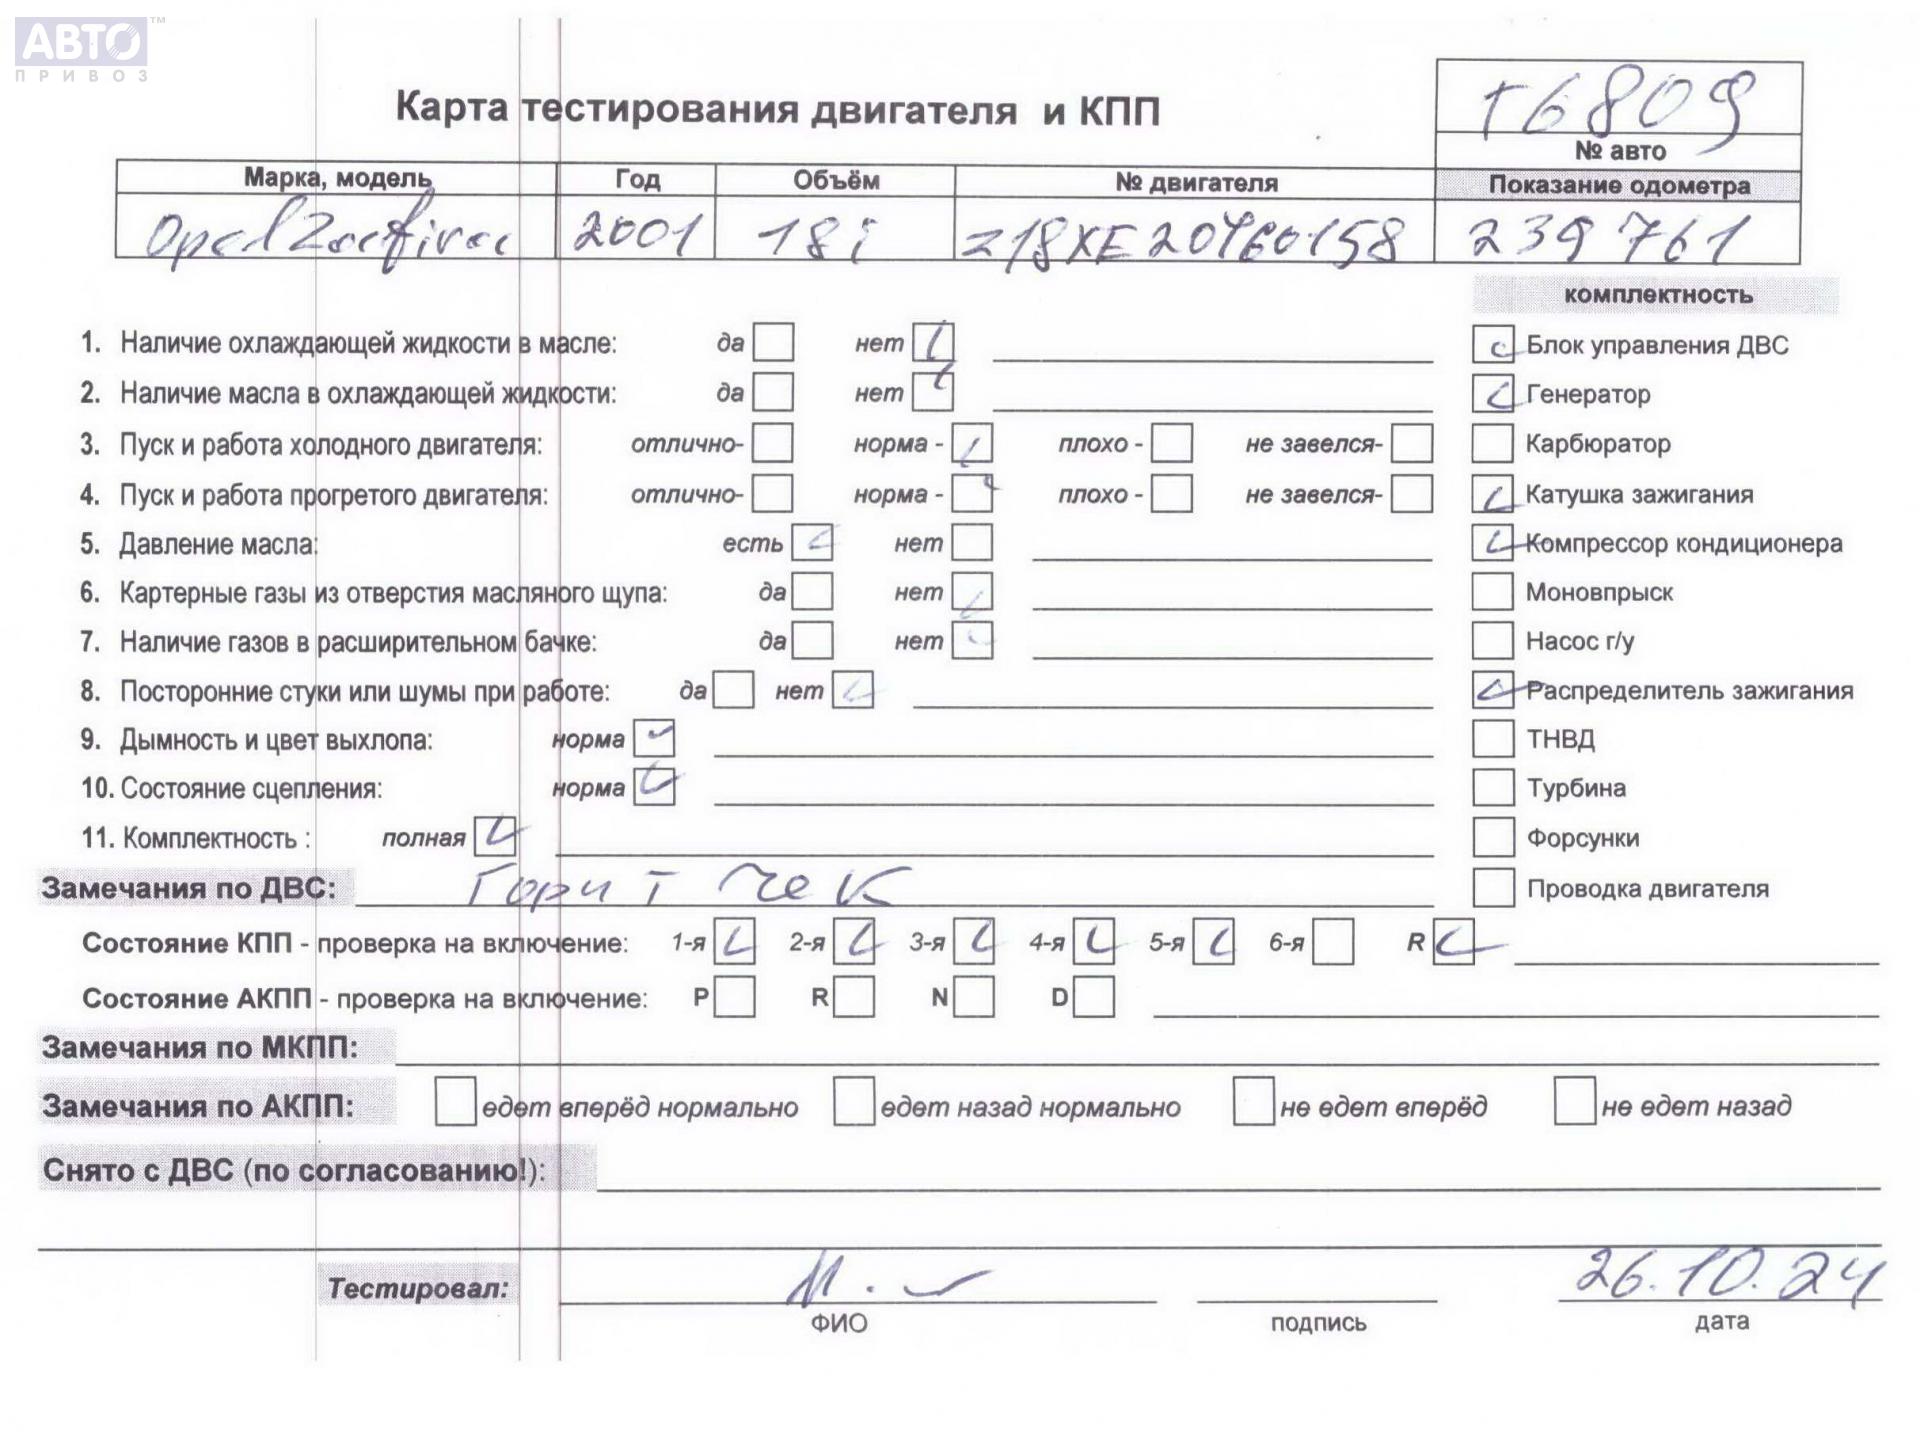 АВТО™
ПРИВОЗ
Карта тестирования двигателя и КПП
т6809
№ авто
Марка, модель Год Объём № двигателя Показание одометра
Opel Zafira 2001 18i z18XE20460158 239761
комплектность
1. Наличие охлаждающей жидкости в масле: да нет Блок управления ДВС
2. Наличие масла в охлаждающей жидкости: да нет Генератор
3. Пуск и работа холодного двигателя: отлично- норма - плохо - не завелся- Карбюратор
4. Пуск и работа прогретого двигателя: отлично- норма - плохо - не завелся- Катушка зажигания
5. Давление масла: есть нет Компрессор кондиционера
6. Картерные газы из отверстия масляного щупа: да нет Моновпрыск
7. Наличие газов в расширительном бачке: да нет Насос г/у
8. Посторонние стуки или шумы при работе: да нет Распределитель зажигания
9. Дымность и цвет выхлопа: норма ТНВД
10. Состояние сцепления: норма Турбина
11. Комплектность : полная Форсунки
Замечания по ДВС: Горит Чек Проводка двигателя
Состояние КПП - проверка на включение: 1-я 2-я 3-я 4-я 5-я 6-я R
Состояние АКПП - проверка на включение: P R N D
Замечания по МКПП:
Замечания по АКПП: едет вперёд нормально едет назад нормально не едет вперёд не едет назад
Снято с ДВС (по согласованию!):
Тестировал: 26.10.24
ФИО подпись дата